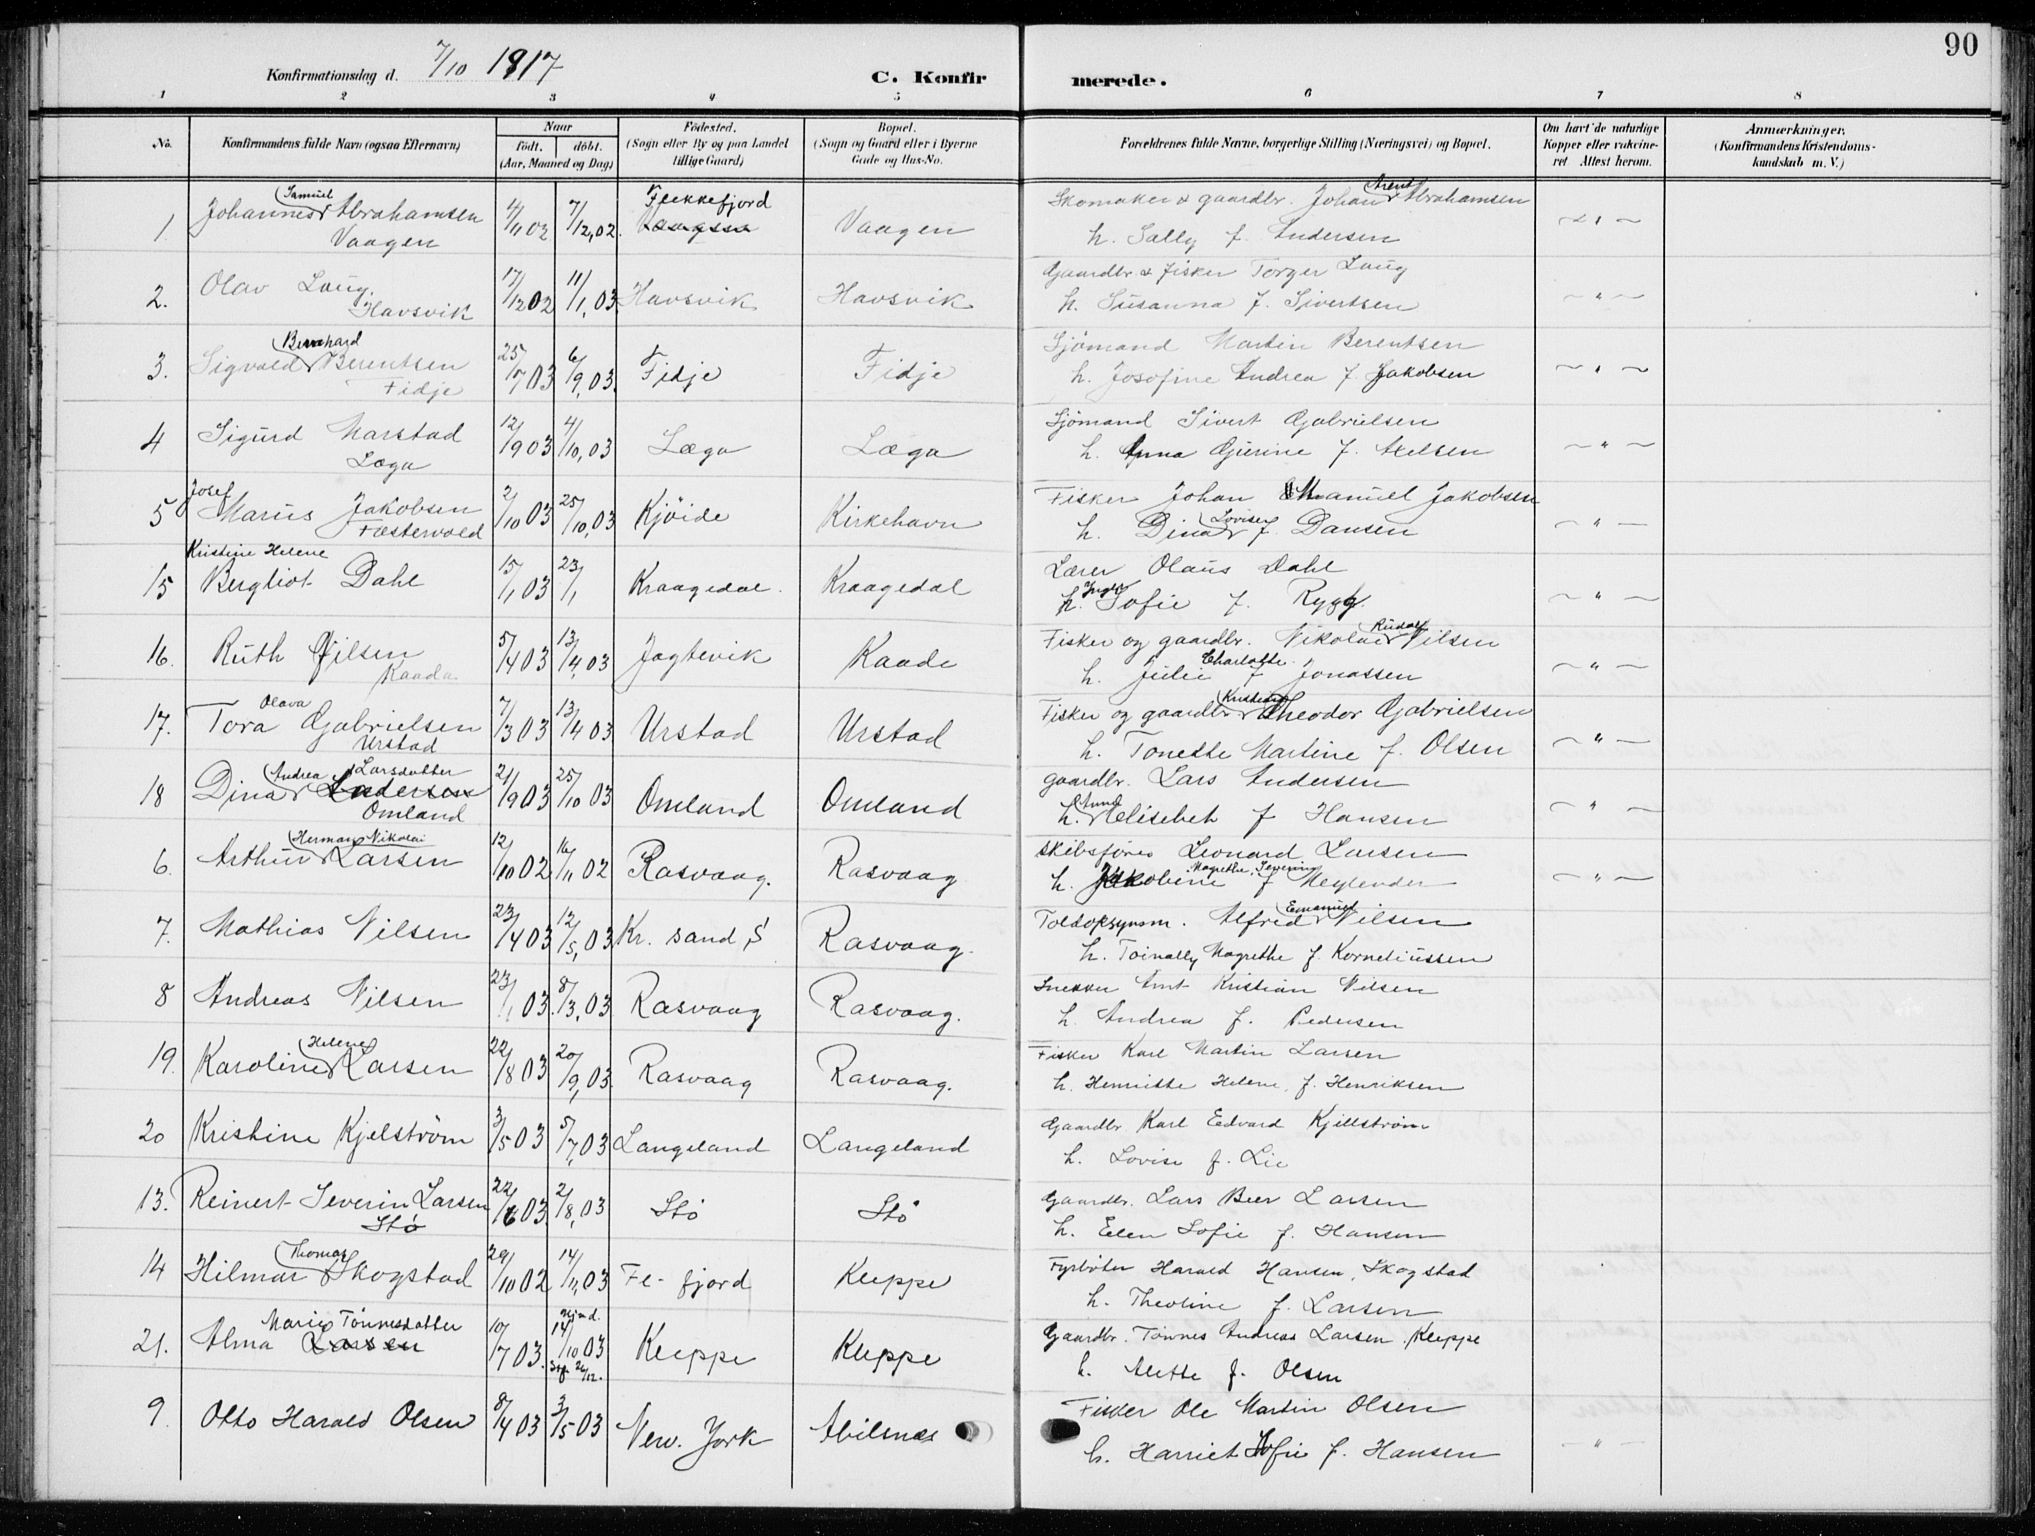 90
Konfirmationsdag d. 7/10 1917 C. Konfirmerede.
1 2 3 4 5 6 7 8
No. Konfirmandens fulde Navn (ogsaa Efternavn) Naar født. døbt. (Aar, Maaned og Dag) Fødested. (Sogn eller By og paa Landet tillige Gaard) Bopæl. (Sogn og Gaard eller i Byerne Gade og Hus-No. Forældrenes fulde Navne, borgerlige Stilling (Næringsvei) og Bopæl. Om havt de naturlige Kopper eller vakcineret Attest herom. Anmærkninger. (Konfirmandens Kristendomskundskab m. V.)
1. Johannes Samuel Abrahamsen 4/11 02 7/12,02 Flekkefjord Vaagen Vaagen Skomaker & gaardbr. Johan Arent Abrahamsen - " -
Vaagen h. Sally f. Andersen
2. Olav Laug. 17/12 02 11/1,03 Havsvik Havsvik Gaardbr. & fisker Torger Laug - " -
Havsvik h. Susanna f. Sivertsen
3. Sigvald Bernhard Berentsen 25/7 03 6/9,03 Fidje Fidje Sjömand Martin Berentsen - " -
Fidje h. Josofine Andrea f. Jakobsen
4 Sigurd Marstad 12/9 03 4/10,03 Læga Læga Sjömand Sivert Gabrielsen - " -
Læga h. Anna Gurine f. Axelsen
5 Josef Marius Jakobsen 2/10 03 25/10,03 Kjöide Kirkehavn Fisker Johan Emanuel Jakobsen - " -
Fæstervold h. Dina Lovise f. Dansen
15 Kristine Helene Bergliot Dahl 15/1 03 23/1 Kraagedal. Kraagedal Lærer Olaus Dahl - " -
h. Inga Sofie f. Rygg.
16. Ruth Nilsen 5/4 03 13/4,03 Jagtevik Kaade Fisker og gaardbr. Nikolai Rudolf Nilsen - " -
Kaada h. Julie Charlotte f Jonassen
17. Tora Olava Gabrielsen 7/3 03 13/4 03 Urstad Urstad Fisker og gaardbr. Kristian Theodor Gabrielsen - " -
Urstad h. Tonette Martine f. Olsen
18 Dina Andrea Larsdatter Andersen 21/9 03 25/10 03 Omland Omland gaardbr. Lars Andersen - " -
Omland h. Anna Elisebet f Hansen
6. Arthur Herman Nikolai Larsen 12/10 02 16/11 02 Rasvaag. Rasvaag skibsförer Leonard Larsen - " -
h. Jakobine Magrethe, Severine f Meylender
7. Mathias Nilsen 23/4 03 12/5,03 Kr. sand, S Rasvaag. Toldopsynsm. Alfred Emanuel Nilsen
h. Toinally Magrethe f. Korneliussen
8 Andreas Nilsen 23/1 03. 8/3,03 Rasvaag Rasvaag. Snekker Arnt Kristian Nilsen
h. Andrea f. Pedersen
19. Karoline Helene Larsen 22/8 03 20/9,03 Rasvaag Rasvaag. Fisker Karl Martin Larsen
h. Henriette Helene, f. Henriksen
20 Kristine Kjelström 3/5 03 5/7,03 Langeland Langeland Gaardbr Karl Edvard Kjellström
h. Lovise f. Lie
13. Reinert Severin Larsen 22/6 03 2/8,03 Stö Stö Gaardbr. Lars Beer Larsen
Stö h. Elen Sofie f. Hansen
14 Hilmar Thomas Skogstad 29/10 02 14/11,03 Fl-fjord Kleppe Fyrböter Harald Hansen, Skogstad
h. Theoline f. Larsen
21. Alma Marie Tönnesdatter Larsen 10/7 03. Hjmd. 14/10 03 26/12. Kleppe Kleppe Gaardbr. Tönnes Andreas Larsen, Kleppe
h. Alette f. Olsen
9. Otto Harald Olsen 8/4 03 3/5 03 New. York Abilsnæs Fisker Ole Martin Olsen - " -
h. Harriet Sofie f. Hansen